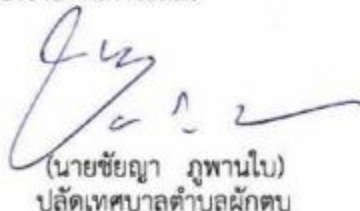 (นายชัยญา ภูพานใบ)
ปลัดเทศบาลตำบลผักตบ